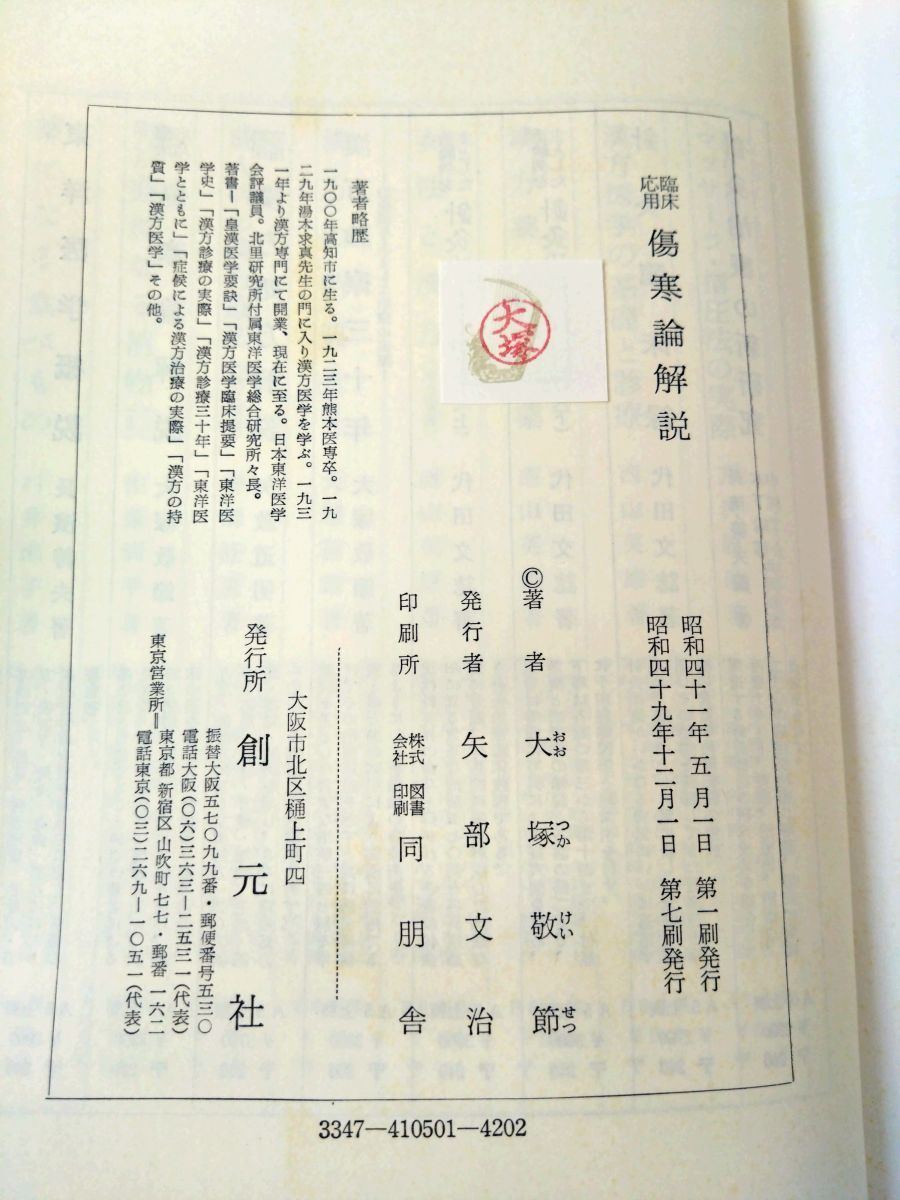 臨床応用 傷寒論解説
昭和四十一年 五 月一日 第一刷発行
昭和四十九年十二月一日 第七刷発行
©著 者 大塚敬節
おお つか けい せつ
発行者 矢部文治
印刷所 株式会社 図書印刷 同朋舎
大阪市北区樋上町四
発行所 創元社
振替大阪五七〇九九番・郵便番号五三〇
電話大阪(〇六)三六三―二五三一(代表)
東京営業所＝東京都 新宿区 山吹町 七七・郵番 一六二
電話東京(〇三)二六九―一〇五一(代表)
大塚
著者略歴
一九〇〇年高知市に生る。一九二三年熊本医専卒。一九
二九年湯本求真先生の門に入り漢方医学を学ぶ。一九三
一年より漢方専門にて開業、現在に至る。日本東洋医学
会評議員。北里研究所付属東洋医学総合研究所々長。
著書―「皇漢医学要訣」「漢方医学臨床提要」「東洋医
学史」「漢方診療の実際」「漢方診療三十年」「東洋医
学とともに」「症候による漢方治療の実際」「漢方の特
質」「漢方医学」その他。
3347―410501―4202